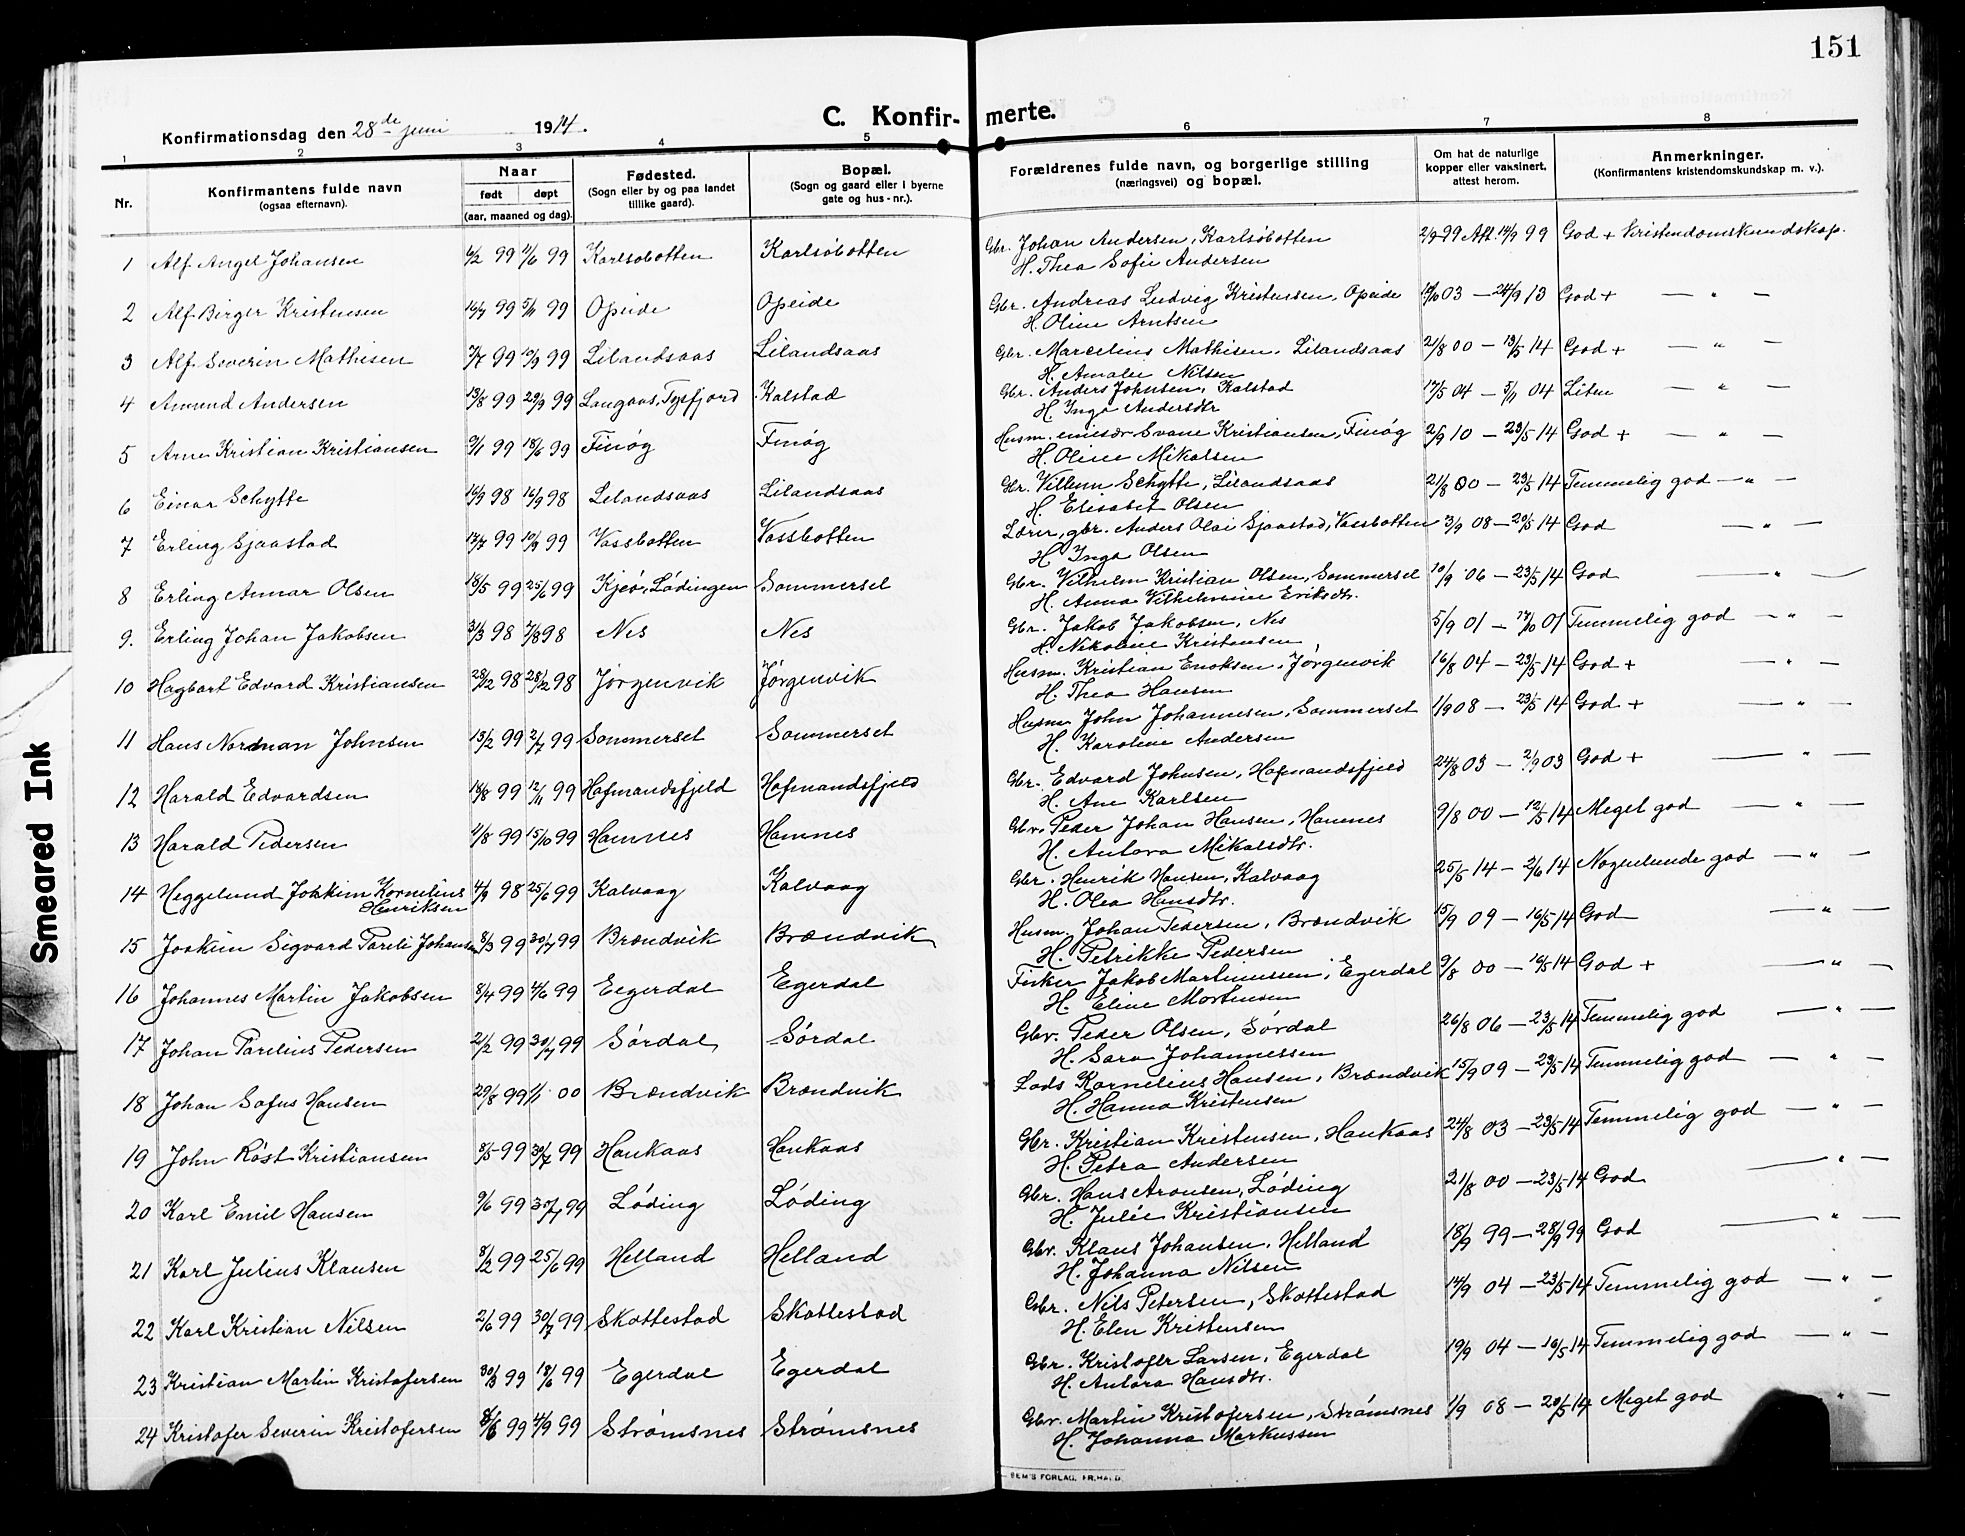 151
Konfirmationsdag den 28de juni 1914.
C. Konfir- merte.
1 2 3 4 5 6 7 8
Nr.
Konfirmantens fulde navn
(ogsaa efternavn).
Naar
født døpt
(aar, maaned og dag).
Fødested.
(Sogn eller by og paa landet
tillike gaard).
Bopæl.
(Sogn og gaard eller i byerne
gate og hus-nr.).
Forældrenes fulde navn, og borgerlige stilling
(næringsvei) og bopæl.
Om hat de naturlige
kopper eller vaksinert,
attest herom.
Anmerkninger.
(Konfirmantens kristendomskundskap m. v.).
1 Alf Angel Johansen 99 11/6 99 Karlsøbotten Karlsöbotten Gbr. Johan Andersen, Karlsöbotten 2/9 99 Aft. 14/9 99 God + Kristendomskundskap.
H. Thea Sofie Andersen
2 Alf Birger Kristensen 16/7 99 5/11 99 Opeide Opeide Gbr. Andreas Ludvig Kristensen, Opeide 03 — 24/9 13 God + — " —
H. Oline Arntsen
3 Alf Severin Mathisen 7/7 99 10/9 99 Lilandsaas Lilandsaas Gbr. Marcelius Mathisen, Lilandsaas 21/8 00 — 13/5 14 God + — " —
H. Amalie Nilsen
4 Amund Andersen 13/8 99 29/9 99 Langaas, Tysfjord Kalstad Gbr. Anders Johnsen, Kalstad 17/5 04 — 5/11 04 Liten — " —
H. Inga Andersdtr
5 Arne Kristian Kristiansen 9/1 99 18/6 99 Finøg Finøg Husm. Svane Kristiansen, Finøg 2/9 10 — 23/5 14 God + — " —
H. Oline Mikalsen
6 Einar Schytte 16/9 98 98 Lilandsaas Lilandsaas Gbr. Villum Schytte, Lilandsaas 21/8 00 — 23/5 14 Temmelig god — " —
H. Elisabet Olsen
7 Erling Sjaastad 17/7 99 10/9 99 Vassbotten Vassbotten Lærer, gbr. Anders Olai Sjaastad, Vassbotten 3/9 08 — 20/5 14 God — " —
H. Inga Olsen
8 Erling Annar Olsen 18/5 99 25/6 99 Kjeö, Lödingen Sommerset Gbr. Vilhelm Kristian Olsen, Sommerset 10/9 06 — 23/5 14 God — " —
H. Anna Vilhelmine Eriksdtr.
9. Erling Johan Jakobsen 31/3 98 7/8 98 Nes Nes Gbr. Jakob Jakobsen, Nes 5/9 01 — 17/10 01 Temmelig god — " —
H. Nikoline Kristensen
10 Hagbart Edvard Kristiansen 98 98 Jørgenvik Jørgenvik Husm. Kristian Enoksen, Jørgenvik 16/8 04 — 23/5 14 God + — " —
H. Thea Hansen
11 Hans Nordman Johnsen 13/2 99 2/7 99 Sommerset Sommerset Husm John Johannesen, Sommerset 1/9 08 — 23/5 14 God + — " —
H. Karoline Andersen
12 Harald Edvardsen 18/8 99 12/11 99 Hofmandsfjeld Hofmandsfjeld Gbr. Edvard Johnsen, Hofmandsfjeld 24/8 03 — 2/9 03 God + — " —
H. Ane Karlsen
13 Harald Pedersen 1/8 99 15/10 99 Hamnes Hamnes Gbr. Peder Johan Hansen, Hamnes 9/8 00 — 12/5 14 Meget god — " —
H. Antora Mikalsdtr.
14 Heggelund Joakim Kornelius 4/9 98 25/6 99 Kalvaag Kalvaag Gbr. Henrik Hansen, Kalvaag 25/5 14 — 2/6 14 Nogenlunde god — " —
Henriksen H. Olea Hansdtr.
15 Joakim Sigvard Pareli Johansen 8/3 99 30/7 99 Brændvik Brændvik Husm. Johan Pedersen, Brændvik 15/9 09 — 16/5 14 God — " —
H. Petrikke Pedersen
16 Johannes Martin Jakobsen 8/4 99 4/6 99 Eegerdal Egerdal Fisker Jakob Martinussen, Egerdal 9/8 00 — 14 God + — " —
H. Eline Mortensen
17 Johan Parelius Pedersen 2/2 99 30/7 99 Sørdal Sørdal Gbr. Peder Olsen, Sørdal 26/8 06 — 23/5 14 Temmelig god — " —
H. Sara Johannessen
18 Johan Sofus Hansen 29/8 99 1/1 00 Brændvik Brændvik Lods Kornelius Hansen, Brændvik 15/9 09 — 23/5 14 Temmelig god — " —
H. Hanna Kristensen
19 John Röst Kristiansen 8/5 99 30/7 99 Haukaas Haukaas Gbr. Kristian Kristensen, Haukaas 24/8 03 — 23/5 14 Temmelig god — " —
H. Petra Andersen
20 Karl Emil Hansen 9/6 99 30/7 99 Løding Løding Gbr. Hans Aronsen, Løding 21/8 00 — 23/5 14 God — " —
H. Julie Kristiansen
21 Karl Julius Klausen 8/2 99 25/6 99 Helland Helland Gbr. Klaus Johansen, Helland 18/9 99 — 28/9 99 God — " —
H. Johanna Nilsen
22 Karl Kristian Nilsen 2/6 99 30/7 99 Skottestad Skottestad Gbr. Nils Petersen, Skottestad 14/9 04 — 23/5 14 Temmelig god — " —
H. Elen Kristensen
23 Kristian Martin Kristofersen 30/3 99 18/6 99 Egerdal Egerdal Gbr. Kristofer Larsen, Egerdal 19/9 04 — 14 Temmelig god — " —
H. Antora Hansdtr.
24 Kristofer Severin Kristofersen 99 4/9 99 Strømsnes Strømsnes Gbr. Martin Kristofersen, Strømsnes 1/9 08 — 20/5 14 Meget god " —
H. Johanna Markussen
SEM'S FORLAG, FR.HALD.
Smeared Ink